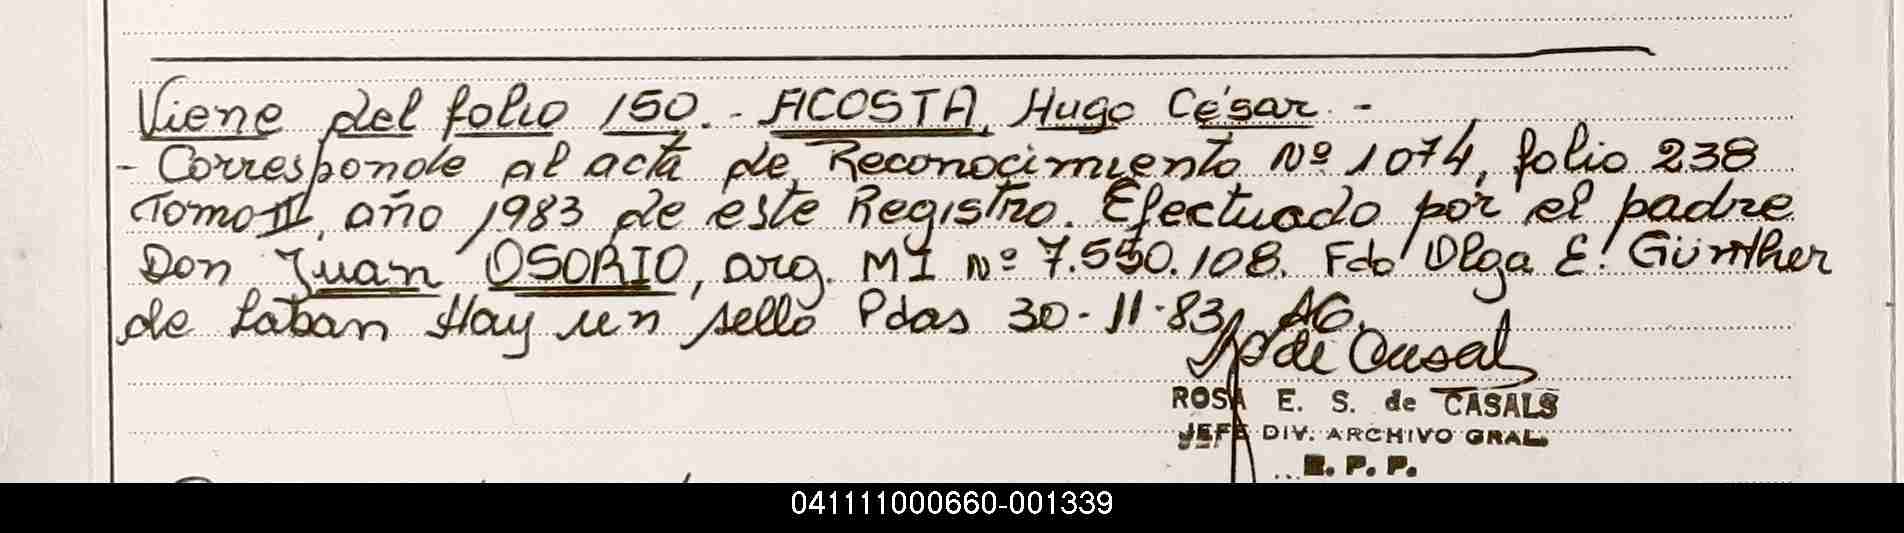 Viene del folio 150. - ACOSTA, Hugo César. -
- Corresponde al acta de Reconocimiento Nº 1074, folio 238
Tomo III, año 1983 de este Registro. Efectuado por el padre
Don Juan OSORIO, arg. MI Nº 7.550.108. Fdo Olga E. Günther
de Laban Hay un sello Pdas 30-11-83, AG.
ROSA E. S. de CASALS
JEFE DIV. ARCHIVO GRAL.
R. P. P.
041111000660-001339